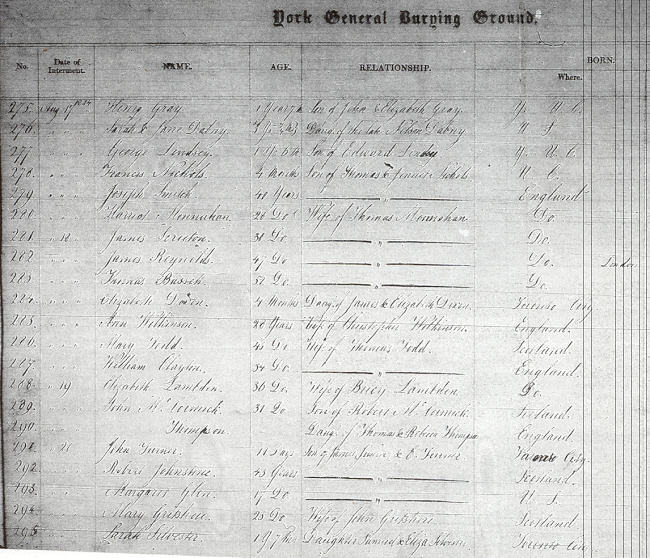 York General Burying Ground.
No. Date of Interment. NAME. AGE. RELATIONSHIP. BORN. Where.
275. Aug 17 1834 Henry Gray. Son of John & Elizabeth Gray. Y. U. C.
276. " " Sarah & Jane Dabny. Daug. of the late Nelson Dabny. U. S.
277 " " George Lindsey. Son of Edward Y. U. C.
278. " " Francis Nichols. 4 Months Son of Thomas & U. C.
279 " " Joseph Smith. 41 Years " England
280 " " 26 Do Wife of Thomas Do.
281 " 18 James 38 Do. " Do.
282 " " James Reynolds. 47 Do " Do. London
283 " " Thomas 52 Do " Do
284. " " Elizabeth 4 Months Daug. of James & Elizabeth Toronto City
285. " " Ann Wilkinson. 28 Years Wife of Christopher Wilkinson. England.
286 " " Mary Todd. 45 Do Wife of Thomas Todd.
287. " " William Clayton. 34 Do. " England.
288 " 19 Elizabeth Lambden. 36 Do Wife of Lambden. Do.
289. " " John McCormick. 31 Do Son of Robert McCormick. Ireland.
290. " " Thompson. Daug. of Thomas & Thompson England.
291. " 20 John Turner. 11 Days Son of James & E. Turner Toronto City.
292. " " Robert Johnstone. 45 Years " Scotland.
293. " " Margaret Glen. 17 Do " U S
294. " " Mary 25 Do Wife of John Scotland
295 " " Sarah Silvester. Daughter & Eliza Silvester. Toronto City